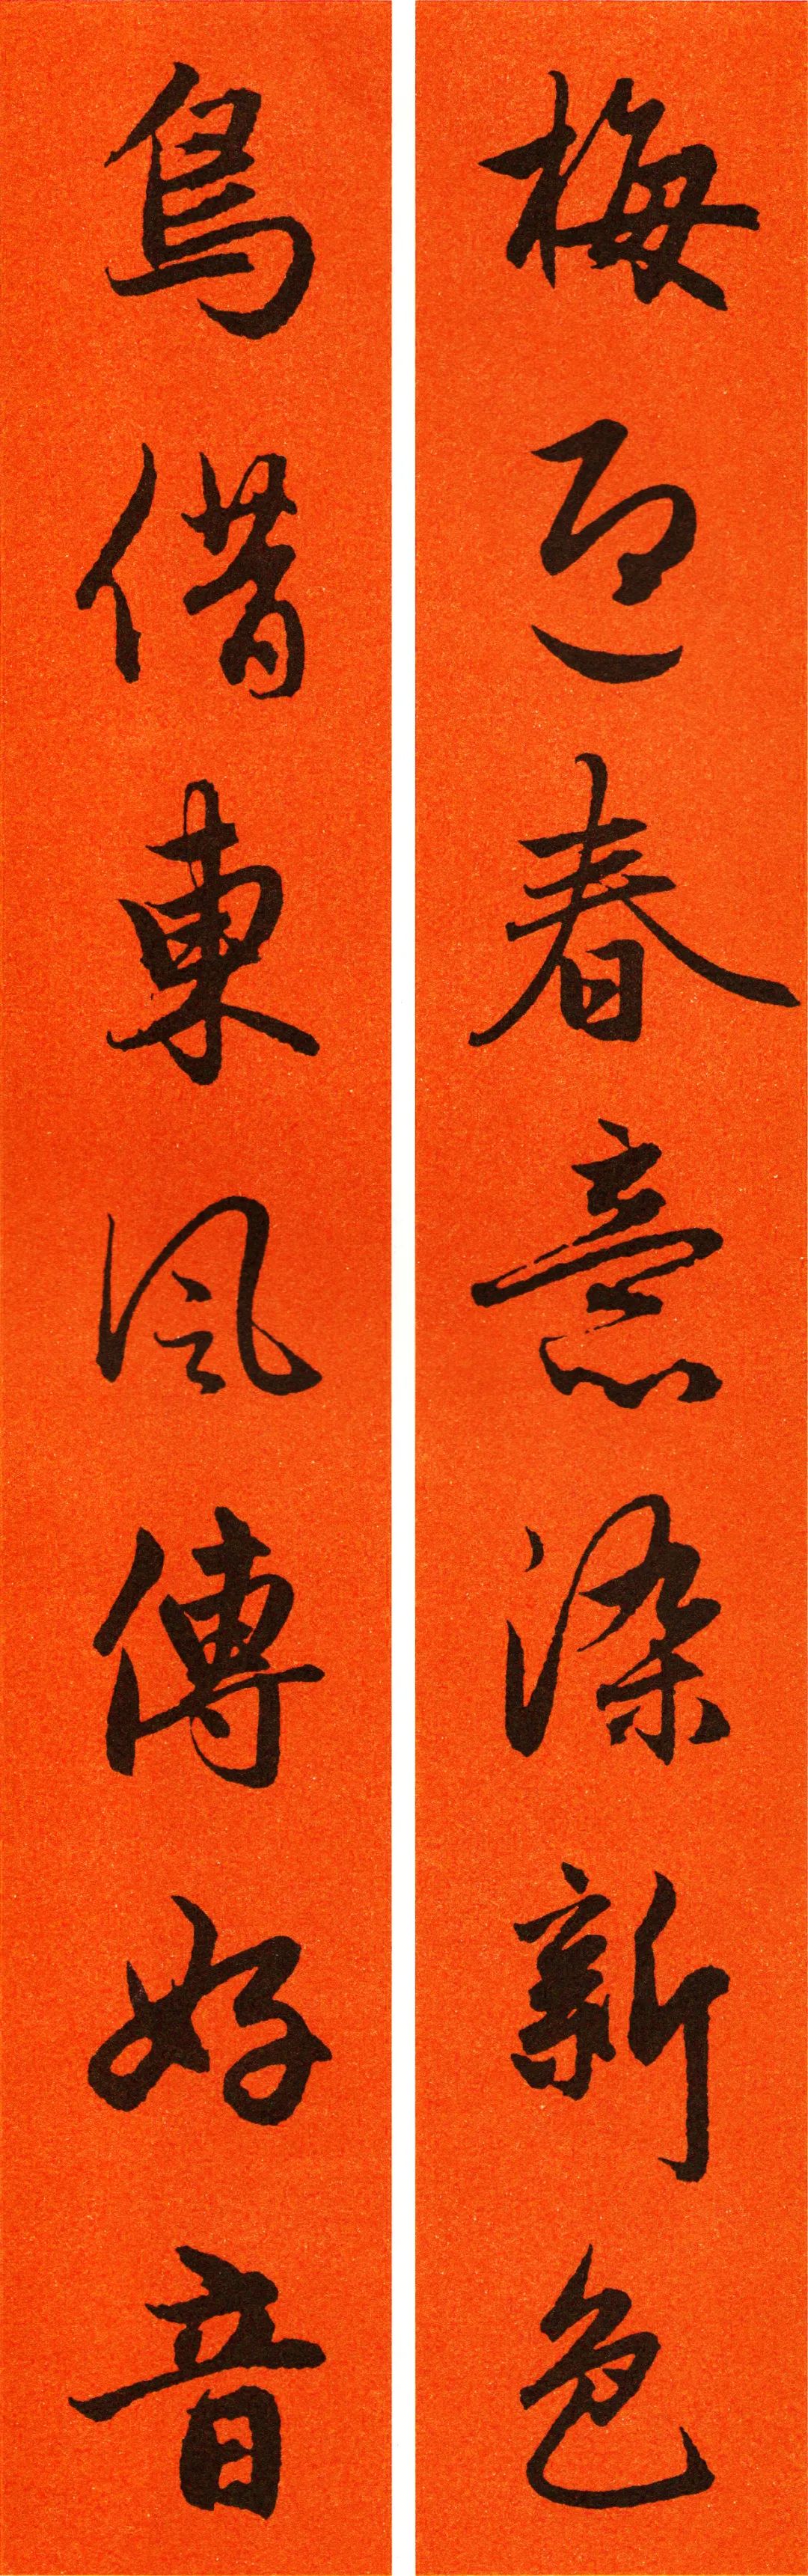 梅迎春意染新色
鳥借東風傳好音